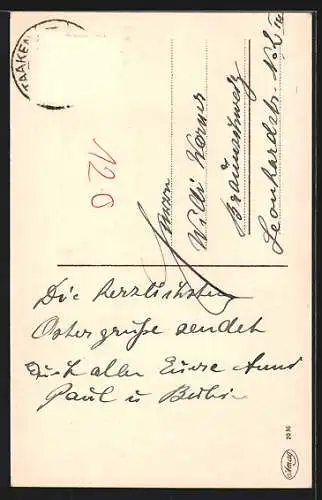 STAAKEN
120
Willi Werner
Braunschweig
Leonhardstr. 162 III
Die herzlichsten
Ostergrüße sendet
Euch allen Eure Anni
Paul u
2036
Amag